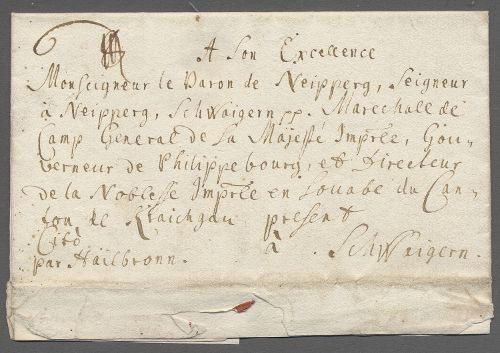 A Son Excellence
Monseigneur le Baron de Neipperg, Seigneur
à Neipperg, Schwaigern pp. Marechall de
Camp General de Sa Majesté Imprle, Gou-
verneur de Philippebourg, et Directeur
de la Noblesse Imprle en Souabe du Can-
ton de Kraichgau present
Cito à Schwaigern.
par Hailbronn.